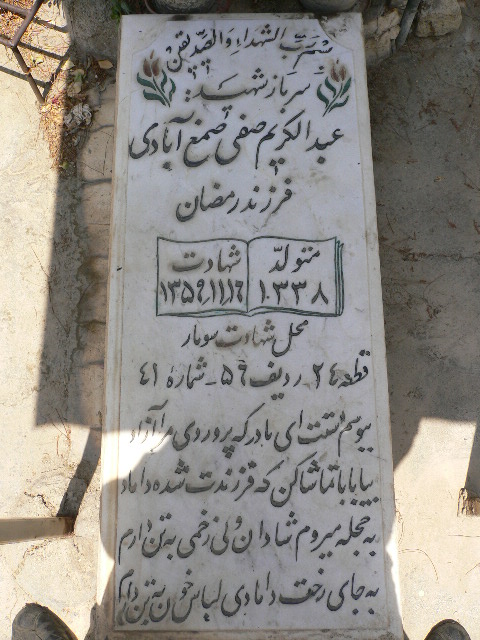 بسم رب الشهداء والصدیقین
سرباز شهید:
عبدالکریم صفی اصمغ آبادی
فرزند رمضان
متولد
۱۳۳۸
شهادت
۱۳۵۹٫۱۱٫۱۶
محل شهادت سومار
قطعه ۲۴ ردیف ۵۹ - شماره ۴۱
ببوسم دستت ای مادر که پروردی مرا آزاد
بیا بابا تماشا کن که فرزندت شده داماد
به حجله میروم شادان ولی زخمی به تن دارم
به جای رخت دامادی لباس خون به تن دارم